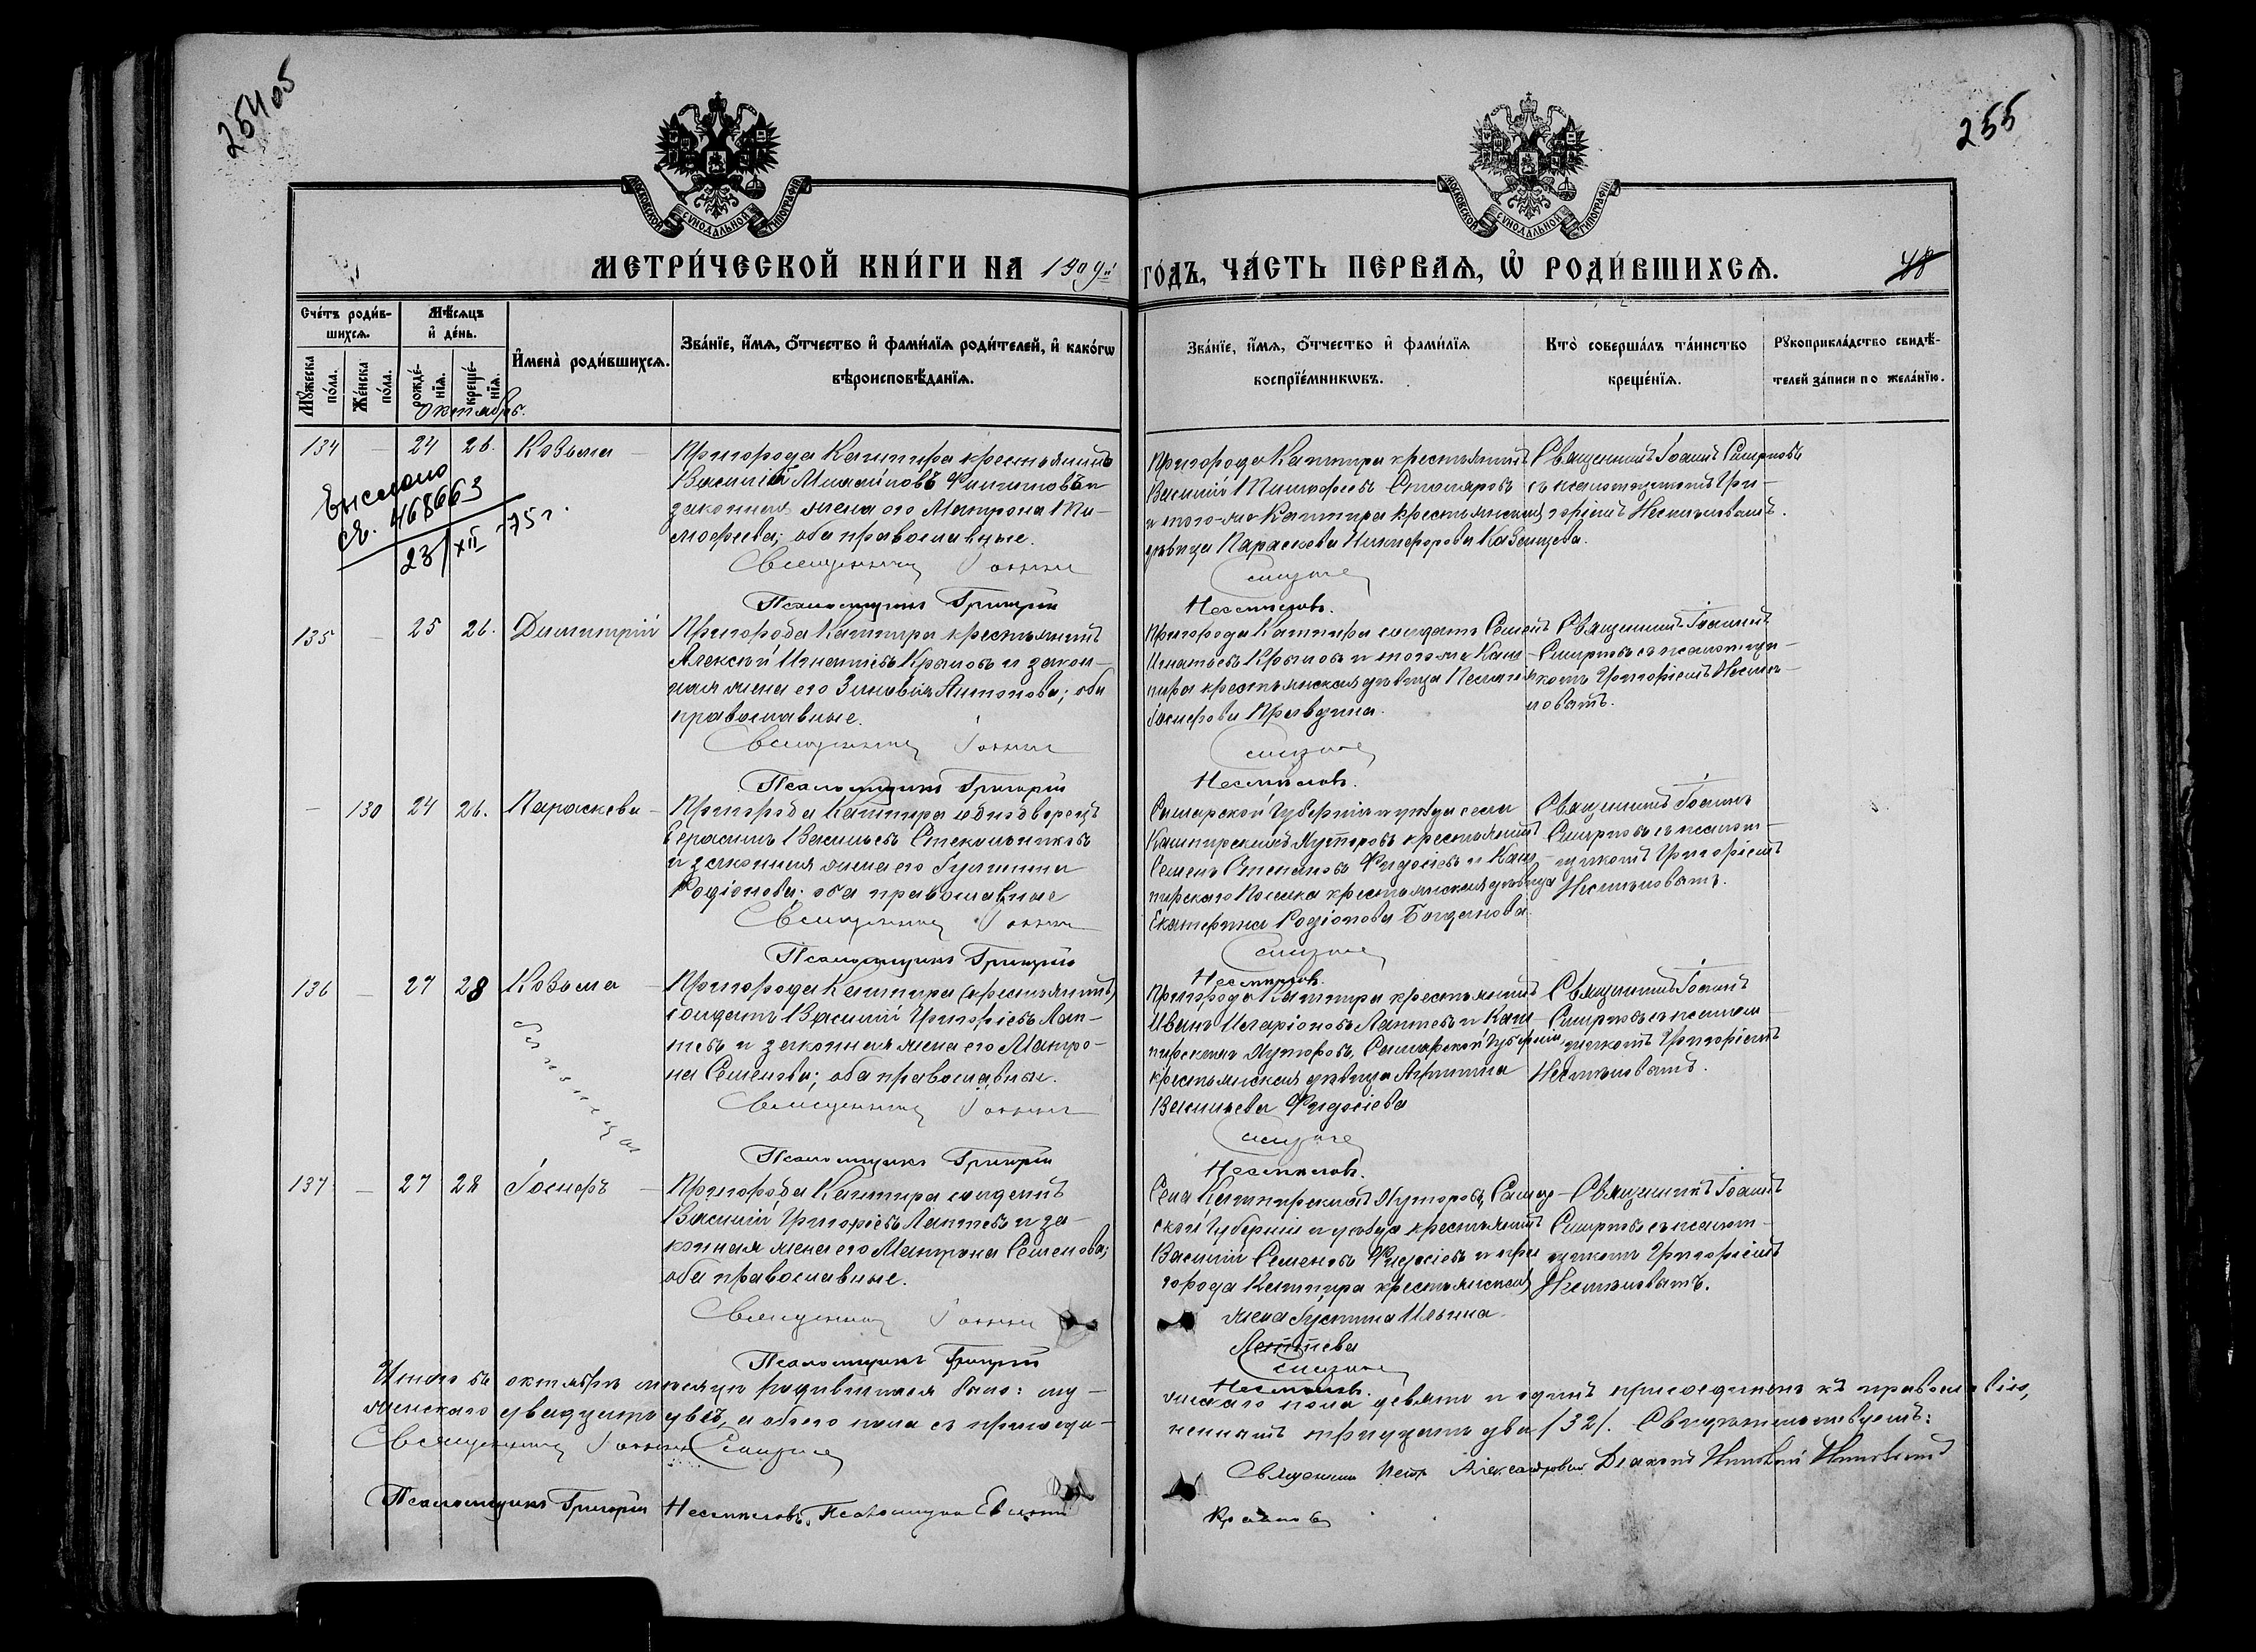 254об
255
МОСКОВСКОЙ СУНОДАЛЬНОЙ ТИПОГРАФІИ
МОСКОВСКОЙ СУНОДАЛЬНОЙ ТИПОГРАФІИ
МЕТРИ́ЧЕСКОЙ КНИ́ГИ НА 1909й ГО́ДЪ, ЧА́СТЬ ПЕРВАѦ, Ѡ҆ РОДИ́ВШИХСѦ.
48
Сче́тъ роди́в-
шихсѧ.
Мѣсѧцъ
и҆ де́нь.
Мꙋ́жеска
по́ла.
Же́нска
по́ла.
рожде́-
нїѧ.
креще́-
нїѧ.
И҆мена̀ роди́вшихсѧ.
Зва́нїе, и҆́мѧ, ѻ҆́тчество и҆ фами́лїѧ роди́телей, и҆ како́гѡ
вѣроисповѣ́данїѧ.
Зва́нїе, и҆́мѧ, ѻ҆́тчество и҆ фами́лїѧ
воспрїе́мникѡвъ.
Кто̀ соверша́лъ та́инство
креще́нїѧ.
Рꙋкоприкла́дство свидѣ́-
телей за́писи по жела́нїю.
октябрь.
134 — 24 26. Козьма —
Пригорода Кашпира крестьянинъ
Василій Филиповъ и
законная жена его Матрона Ти-
мофѣева; оба православные.
Священникъ Іоаннъ
Псаломщикъ Григорій
Выслано
св. 468663
23/XII-75 г.
Пригорода Кашпира крестьянинъ
Василій Тимофѣевъ Столяровъ
и того-же Кашпира крестьянская
дѣвица Параскева Никифорова Казанцева.
Смирновъ
Несмѣловъ.
Священникъ Іоаннъ Смирновъ
съ псаломщикомъ Гри-
горіемъ Несмѣловымъ.
135 — 25 26. Димитрій
Пригорода Кашпира крестьянинъ
Алексѣй Игнатьевъ Крыловъ и закон-
ная жена его Зиновія Антонова; оба
православные.
Священникъ Іоаннъ
Псаломщикъ Григорій
Пригорода Кашпира солдатъ Семенъ
Игнатьевъ Крыловъ и того-же Каш-
пира крестьянская дѣвица Пелагія
Іосифова
Смирновъ
Несмѣловъ.
Священникъ Іоаннъ
Смирновъ съ псаломщи-
комъ Григоріемъ Несмѣ-
ловымъ.
— 130 24 26. Параскева —
Пригорода Кашпира однодворецъ
Герасимъ Васильевъ Стекольниковъ
и законная жена его Іустина
Родіонова; оба православные
Священникъ Іоаннъ
Псаломщикъ Григорій
Самарской губерніи и уѣзда села
Кашпирскихъ Хуторовъ крестьянинъ
Семенъ Степановъ Федосѣевъ и Каш-
пирскаго Поселка крестьянская дѣвица
Екатерина Родіонова Богданова.
Смирновъ
Несмѣловъ.
Священникъ Іоаннъ
Смирновъ съ псалом-
щикомъ Григоріемъ
Несмѣловымъ.
136 — 27 28 Козьма —
близнецы
Пригорода Кашпира (крестьянинъ)
солдатъ Василій Григорьевъ Лап-
тевъ и законная жена его Матро-
на Семенова; оба православные.
Священникъ Іоаннъ
Псаломщикъ Григорій
Пригорода Кашпира крестьянинъ
Иванъ Иларіоновъ Лаптевъ и Каш-
пирскихъ Хуторовъ, Самарской губерніи,
крестьянская дѣвица
Васильева Федосѣева
Смирновъ
Несмѣловъ.
Священникъ Іоаннъ
Смирновъ съ псалом-
щикомъ Григоріемъ
Несмѣловымъ.
137 — 27 28 Іосифъ —
Пригорода Кашпира солдатъ
Василій Григорьевъ Лаптевъ и за-
конная жена его Матрона Семенова;
оба православные.
Священникъ Іоаннъ
Псаломщикъ Григорій
Села Кашпирскихъ Хуторовъ, Самар-
ской губерніи и уѣзда крестьянинъ
Василій Семеновъ Федосѣевъ и при
города Кашпира крестьянская
жена Іустина Ильина
Лаптева
Смирновъ
Несмѣловъ.
Священникъ Іоаннъ
Смирновъ съ псалом-
щикомъ Григоріемъ
Несмѣловымъ.
Итого въ октябрѣ мѣсяцѣ родившихся было: му-
жескаго пола девять и одинъ присоединенъ къ православію,
женскаго двадцать двѣ, а обоего пола съ присоеди-
неннымъ тридцать два /32/. Свидѣтельствуемъ:
Священникъ Іоаннъ Смирновъ
Священникъ Петръ Александровъ Діаконъ Николай
Псаломщикъ Григорій Несмѣловъ. Псаломщикъ